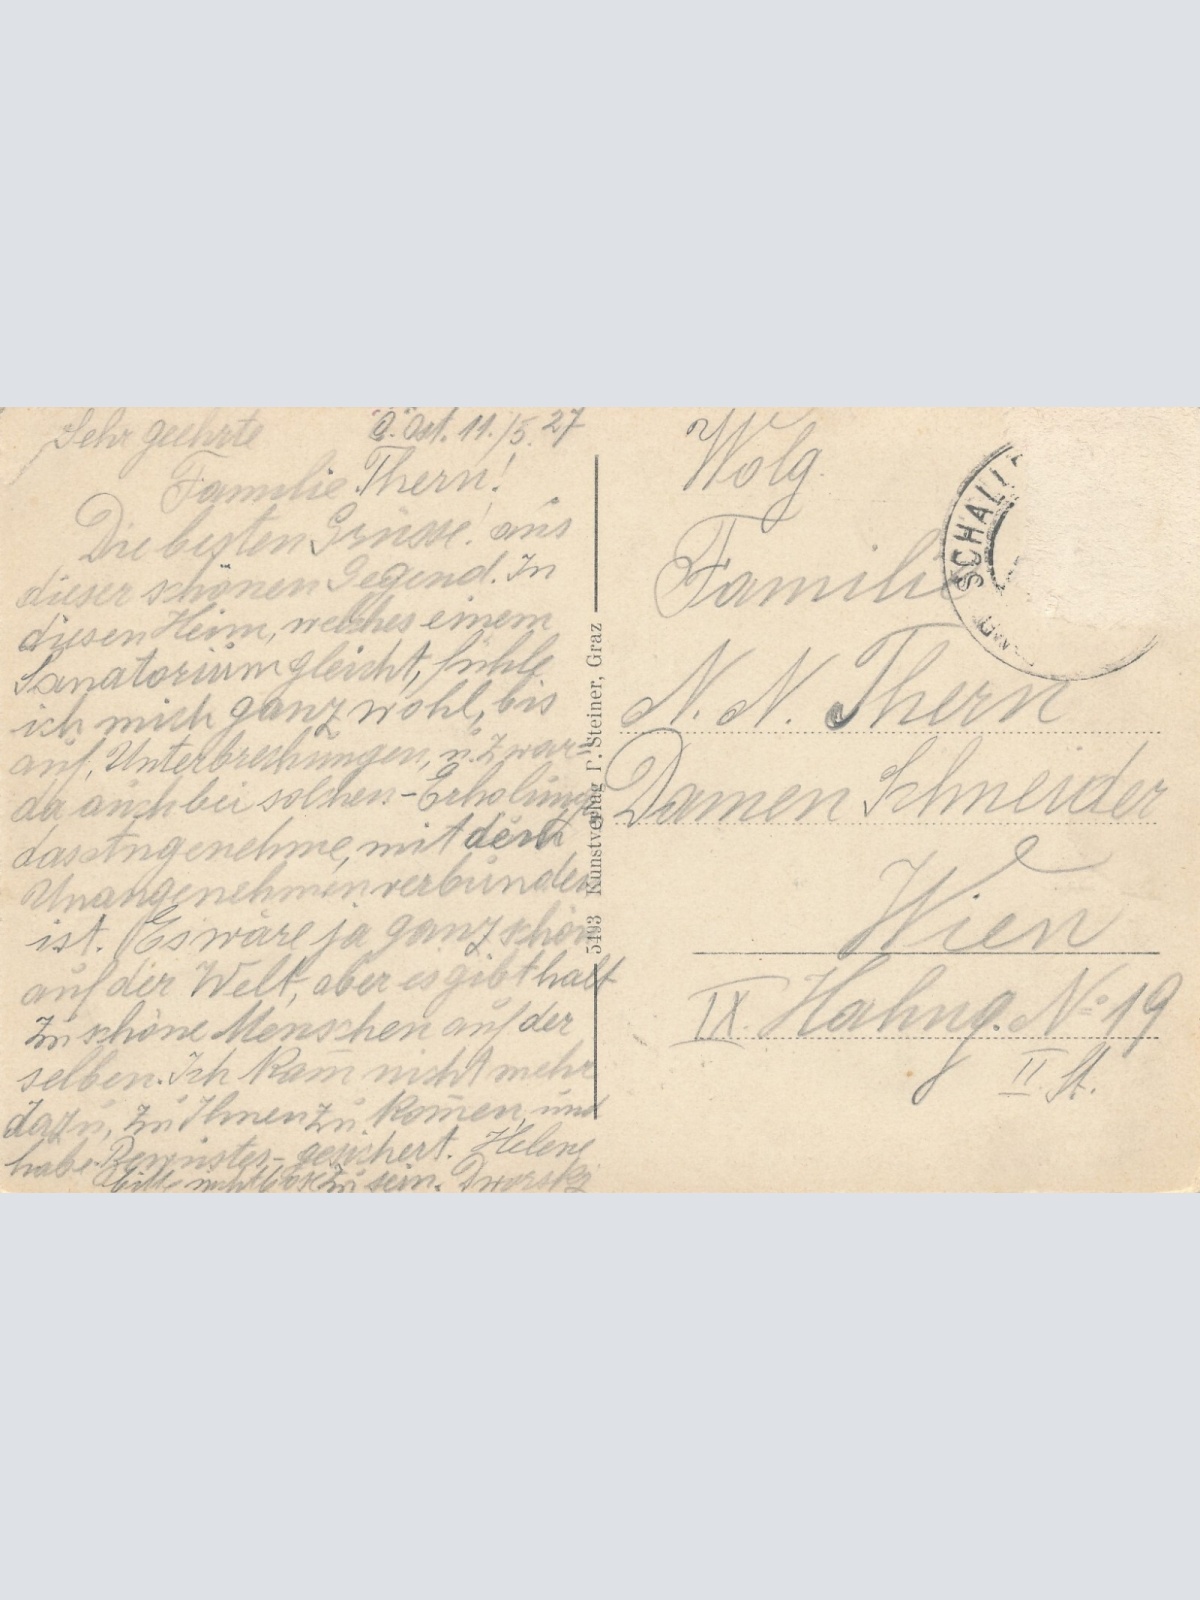 Sehr geehrte
Ö. Ost. 11./5. 27
Familie Thern!
Die besten Grüsse! aus
dieser schönen Gegend. In
diesen Heim, welches einem
Sanatorium gleicht, fühle
ich mich ganz wohl, bis
auf, Unterbrechungen, u. zwar=
da auch bei solchen-Erholung
das Angenehme, mit dem
Unangenehmen verbunden
ist. Es wäre ja ganz schön
auf der Welt, aber es gibt halt
zu schöne Menschen auf der
selben. Ich kam̄ nicht mehr
dazu, zu Ihnen zu kom̄en, und
habe gesichert. Helene
bitte nicht böse zu sein. Dworski
5493 Kunstverlag P. Steiner, Graz
SCHALL
Wolg.
Familie
N. N. Thern
Damen Schneider
Wien
IX. Hahng. No 19
II St.